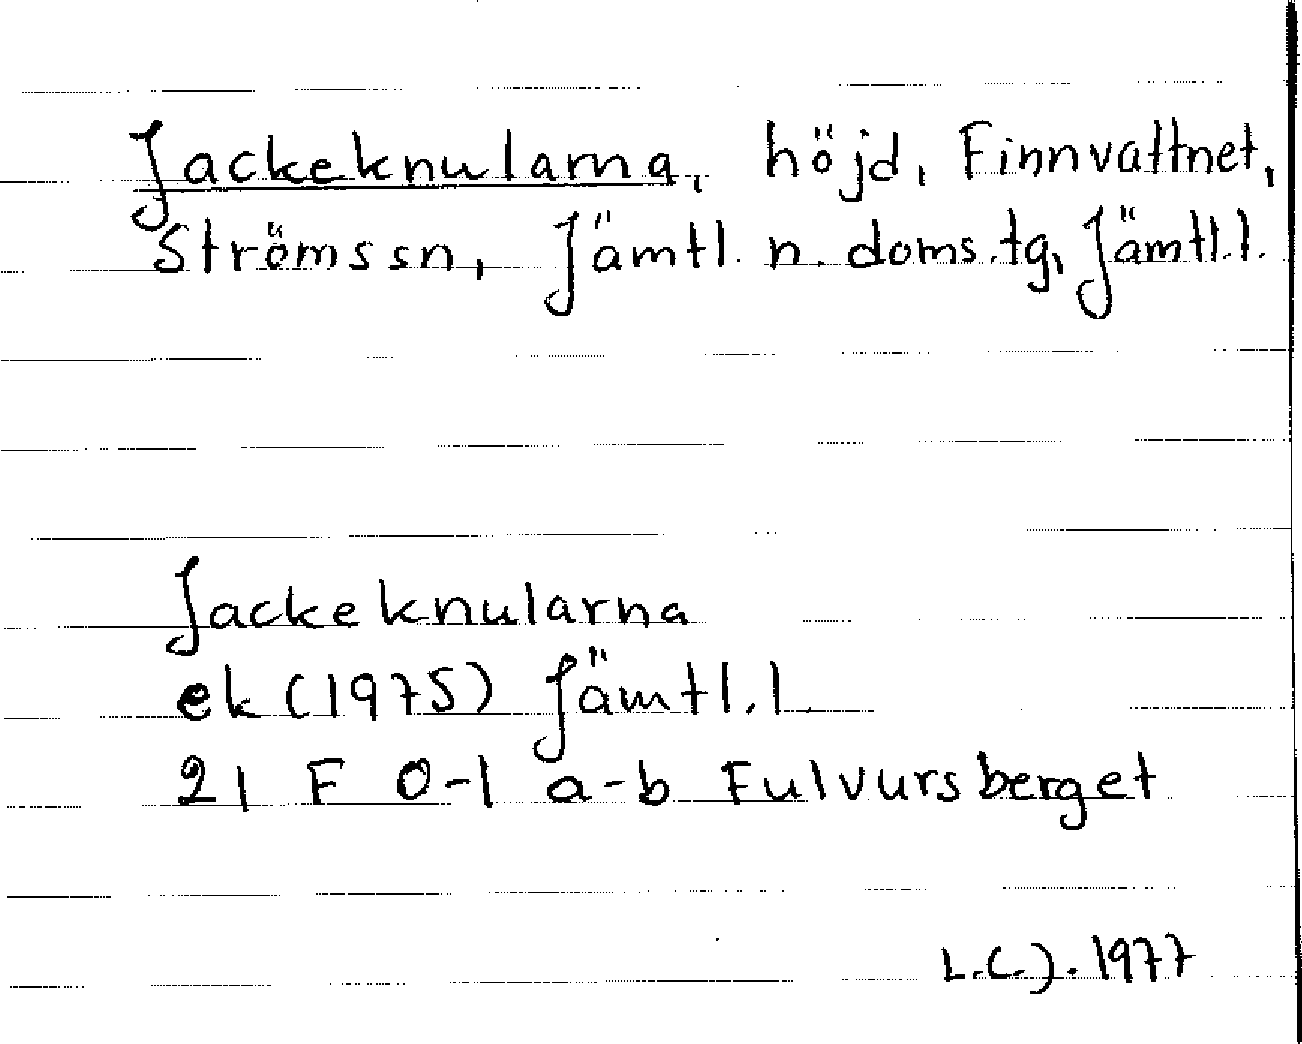 Jackeknularna, höjd, Finnvattnet,
Strömssn, Jämtl. n. doms.tg, Jämtl.l.
Jackeknularna
ek (1975) Jämtl.l.
21 F 0-1 a-b Fulvursberget
L.C.J. 1977